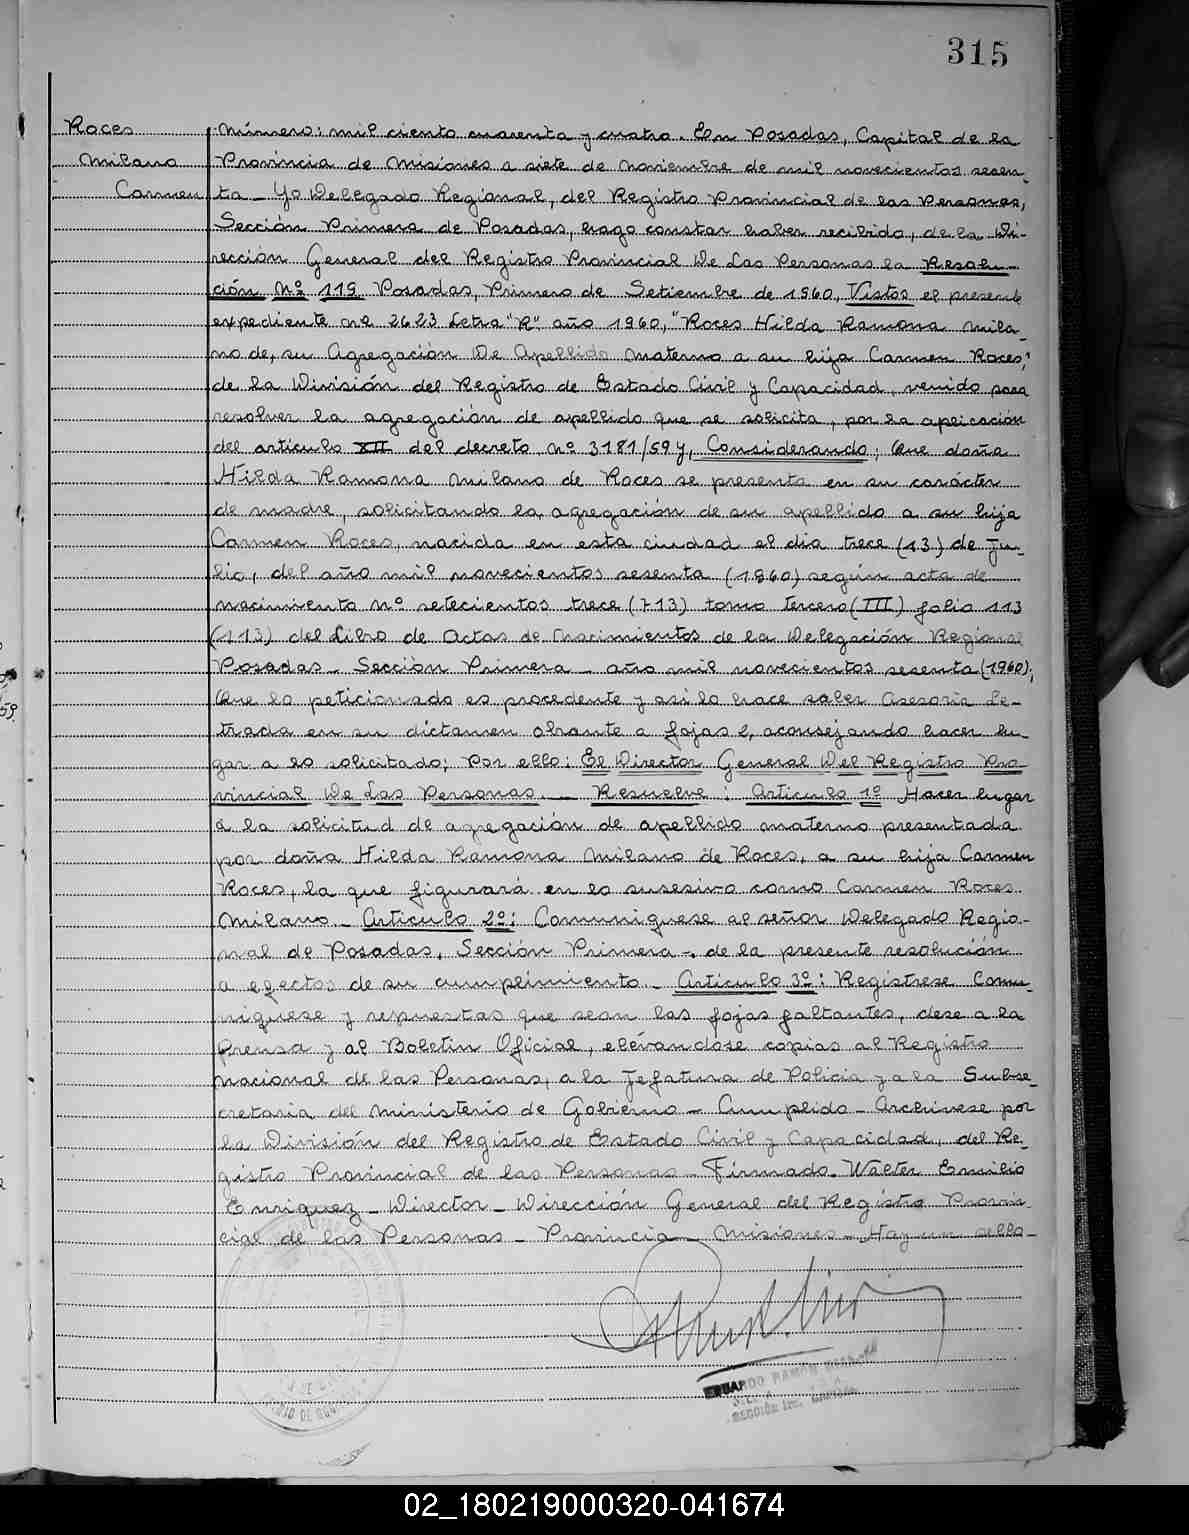 315
Roces
Milano
Carmen
Número: mil ciento cuarenta y cuatro. En Posadas, Capital de la
Provincia de Misiones a siete de noviembre de mil novecientos sesen-
ta - Yo Delegado Regional, del Registro Provincial de las Personas,
Sección Primera de Posadas, hago constar haber recibido, de la Di-
rección General del Registro Provincial De Las Personas la Resolu-
ción Nº 119 Posadas, Primero de Setiembre de 1960, Vistos el presente
expediente nº 2623 Letra "R" año 1960, "Roces Hilda Ramona Mila-
no de, su Agregación De Apellido Materno a su hija Carmen Roces",
de la División del Registro de Estado Civil y Capacidad, venido para
resolver la agregación de apellido que se solicita, por la aplicación
del articulo XII del decreto nº 3181/59 y, Considerando: Que doña
Hilda Ramona Milano de Roces se presenta en su carácter
de madre, solicitando la agregación de su apellido a su hija
Carmen Roces, nacida en esta ciudad el dia trece (13) de Ju-
lio, del año mil novecientos sesenta (1960) según acta de
nacimiento nº setecientos trece (713) tomo tercero (III) folio 113
(113) del Libro de Actas de Nacimientos de la Delegación Regional
Posadas - Sección Primera - año mil novecientos sesenta (1960);
Que lo peticionado es procedente y asi lo hace saber Asesoria Le-
trada en su dictamen obrante a fojas 2, aconsejando hacer lu-
gar a lo solicitado; Por ello: El Director General Del Registro Pro-
vincial De Las Personas. - Resuelve: Articulo 1º Hacer lugar
a la solicitud de agregación de apellido materno presentada
por doña Hilda Ramona Milano de Roces, a su hija Carmen
Roces, la que figurará en lo susesivo como Carmen Roces
Milano. - Articulo 2º: Comuniquese al señor Delegado Regio-
nal de Posadas, Sección Primera -. de la presente resolución
a efectos de su cumplimiento - Articulo 3º: Registrese Comu-
niquese y repuestas que sean las fojas faltantes, dese a la
Prensa y al Boletin Oficial, elévandose copias al Registro
Nacional de las Personas, a la Jefatura de Policia y a la Subse-
cretaria del Ministerio de Gobierno - Cumplido - Archivese por
la División del Registro de Estado Civil y Capacidad, del Re-
gistro Provincial de las Personas - Firmado. Walter Emilio
Enriquez - Director - Dirección General del Registro Provin-
cial de las Personas - Provincia - Misiones - Hay un sello -
EDUARDO RAMON
02_180219000320-041674